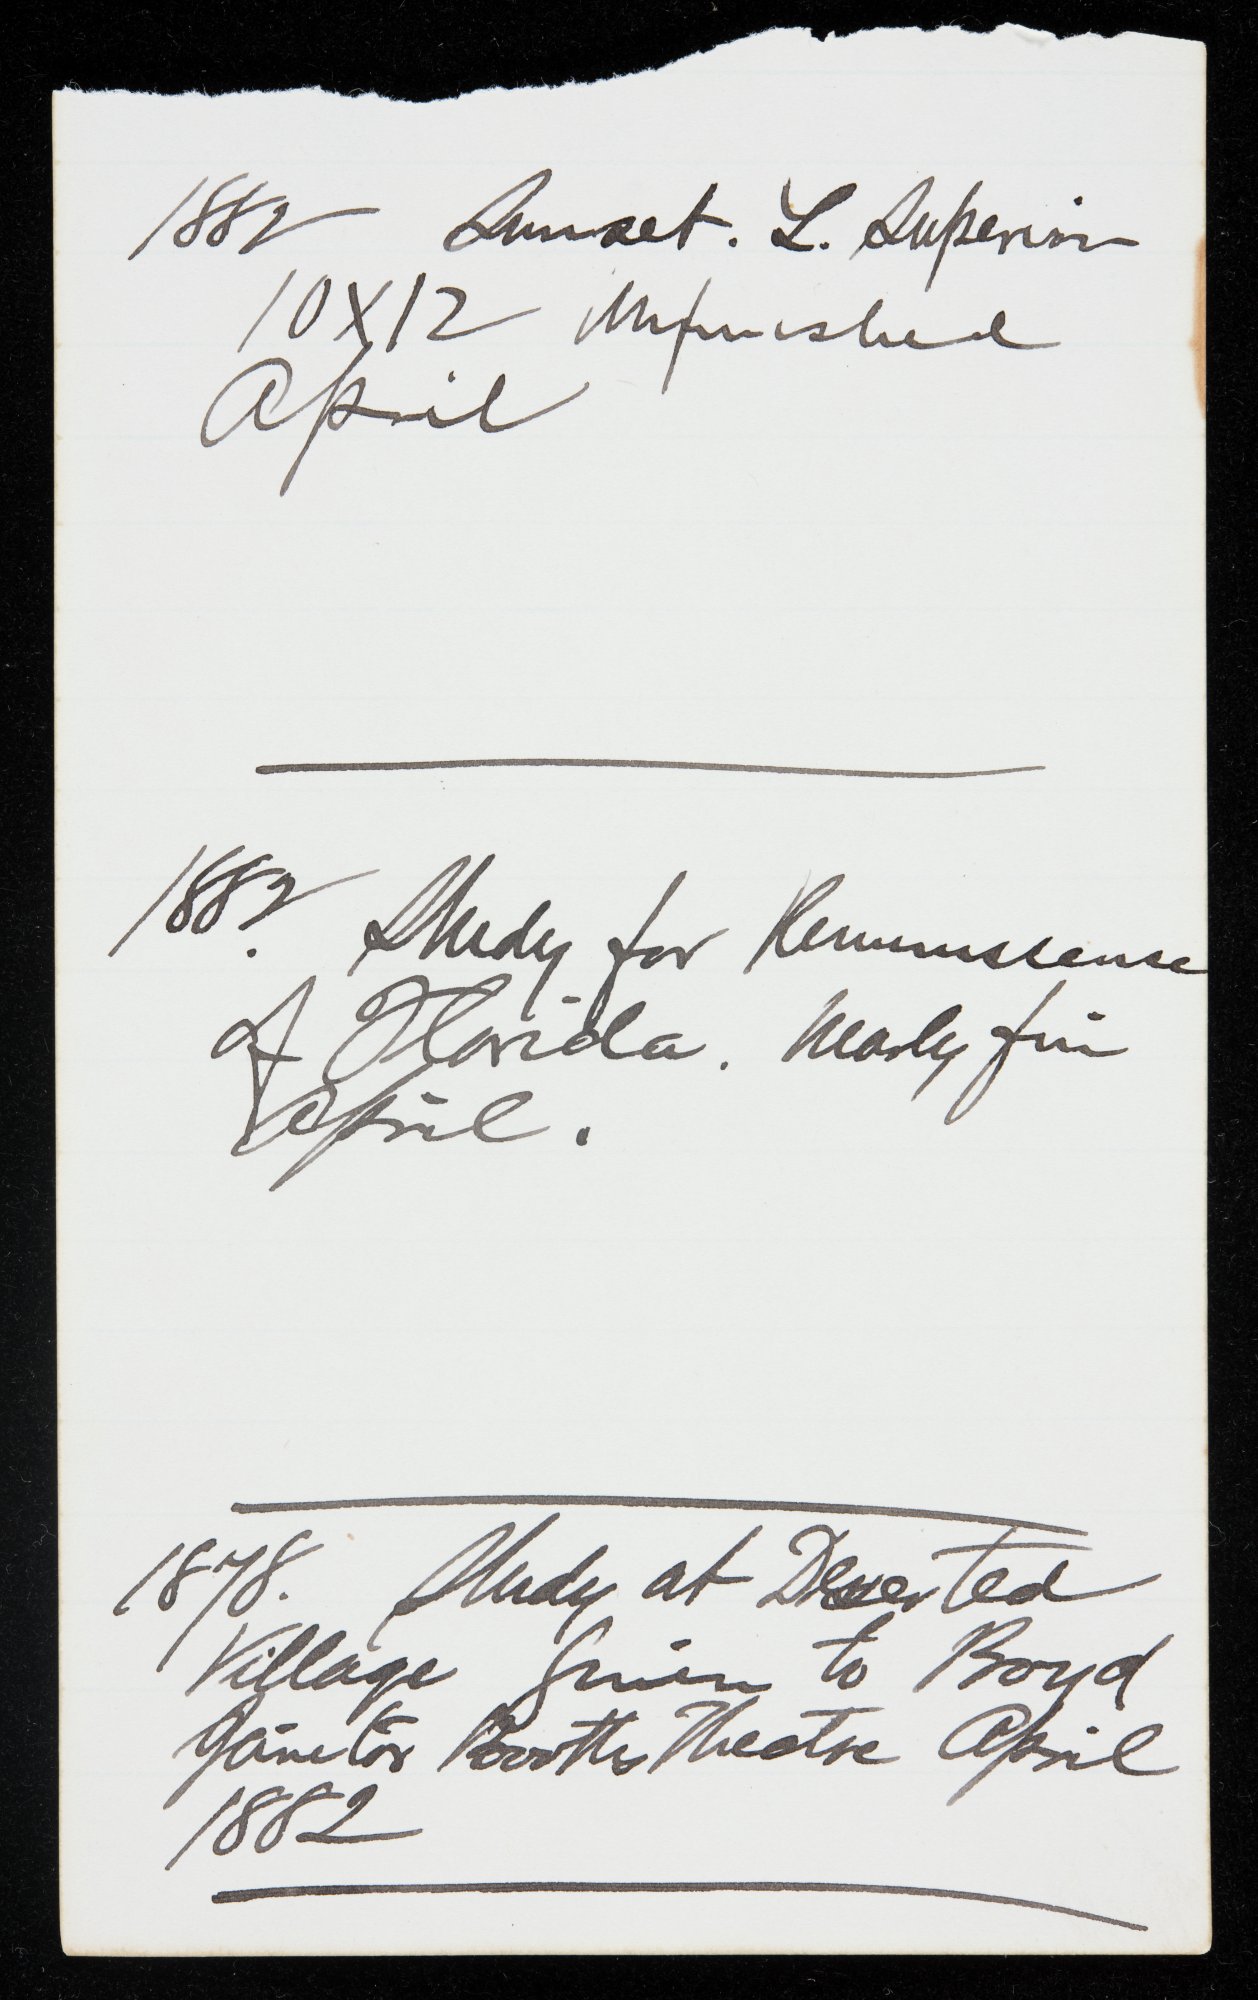 1882 Sunset. L. Superior
10X12 Unfinished
April
1882. Study for Reminissense
of Florida. Nearly fin
April.
1878. Study at Deserted
Village Given to Boyd
Janitor Booths Theatre April
1882